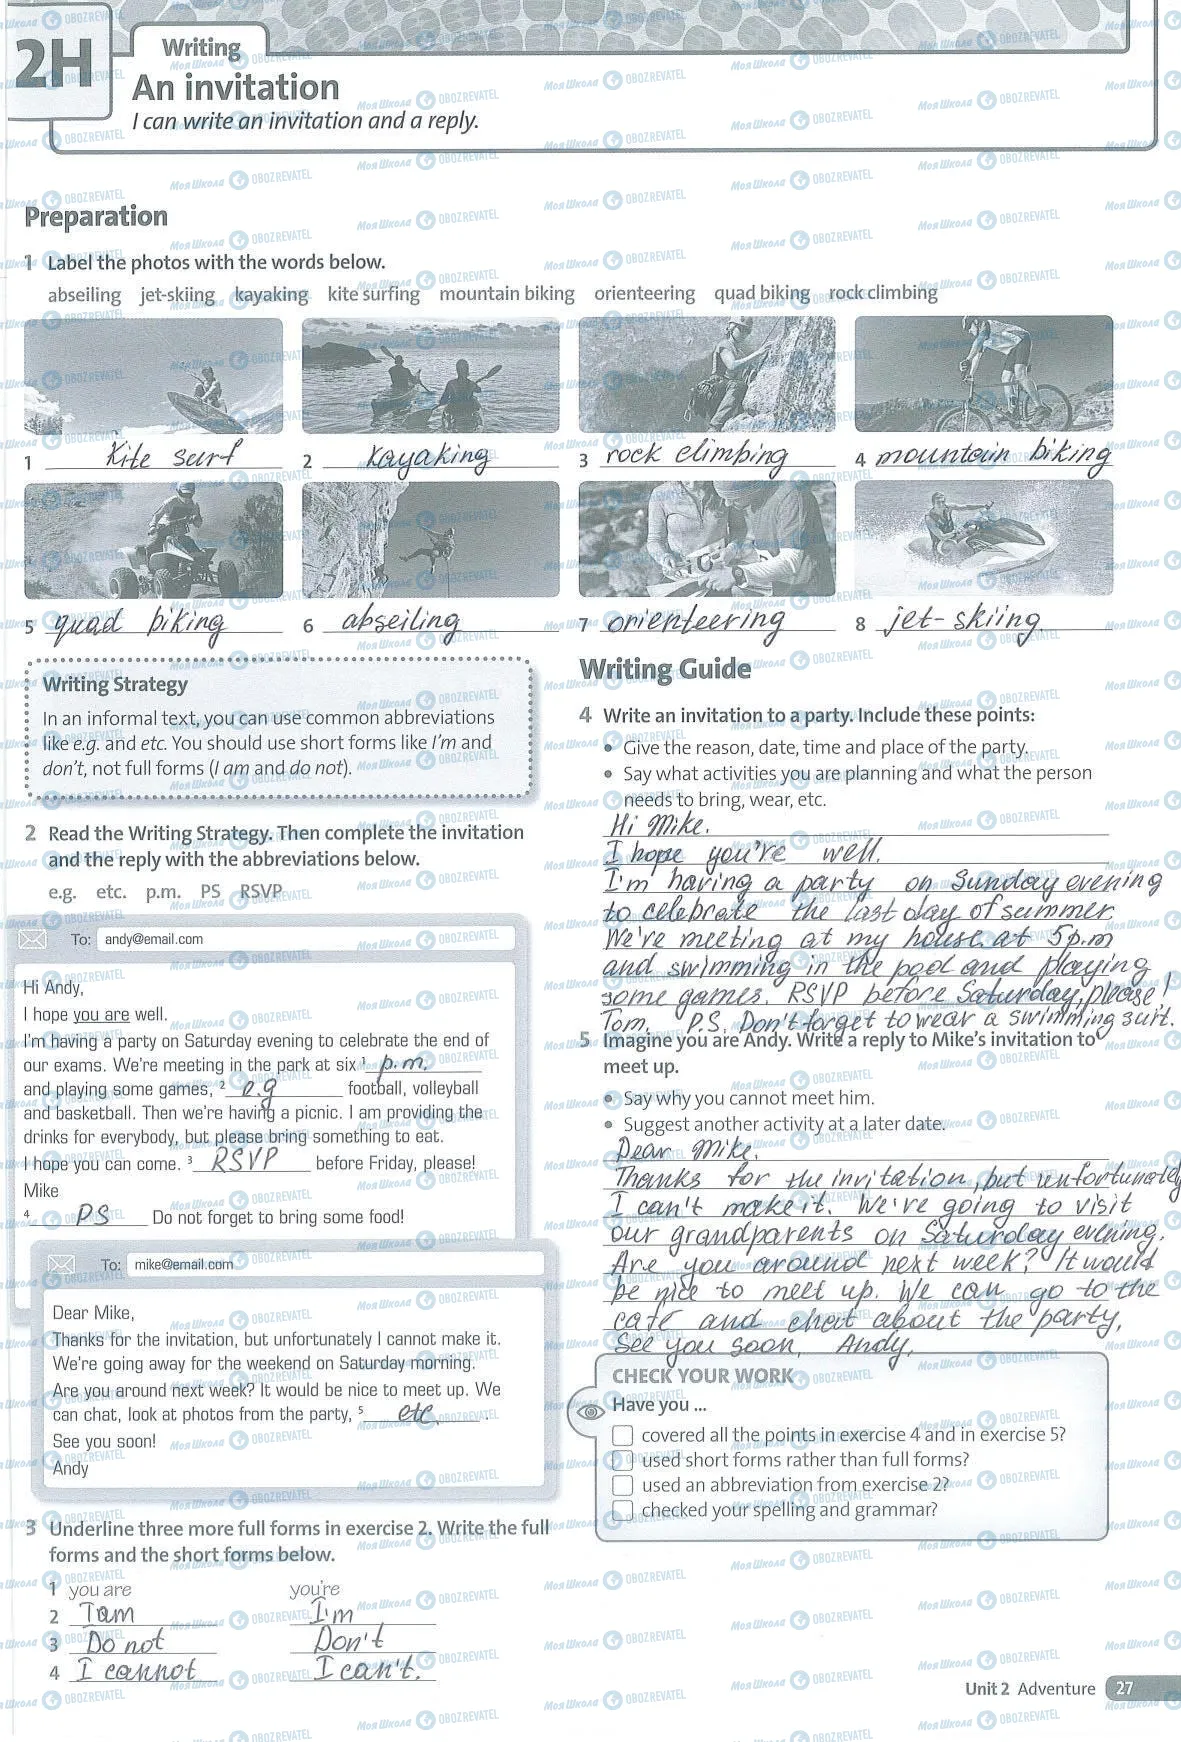 2H
Writing
An invitation
I can write an invitation and a reply.
Preparation
1 Label the photos with the words below.
abseiling jet-skiing kayaking kite surfing mountain biking orienteering quad biking rock climbing
1 Kite surf
2 Kayaking
3 rock climbing
4 mountain biking
5 quad biking
6 abseiling
7 orienteering
8 jet-skiing
Writing Strategy
In an informal text, you can use common abbreviations
like e.g. and etc. You should use short forms like I'm and
don't, not full forms (I am and do not).
2 Read the Writing Strategy. Then complete the invitation
and the reply with the abbreviations below.
e.g. etc. p.m. PS RSVP
To: andy@email.com
Hi Andy,
I hope you are well.
I'm having a party on Saturday evening to celebrate the end of
our exams. We're meeting in the park at six 1 p.m.
and playing some games, 2 e.g football, volleyball
and basketball. Then we're having a picnic. I am providing the
drinks for everybody, but please bring something to eat.
I hope you can come. 3 RSVP before Friday, please!
Mike
4 PS Do not forget to bring some food!
To: mike@email.com
Dear Mike,
Thanks for the invitation, but unfortunately I cannot make it.
We're going away for the weekend on Saturday morning.
Are you around next week? It would be nice to meet up. We
can chat, look at photos from the party, 5 etc.
See you soon!
Andy
3 Underline three more full forms in exercise 2. Write the full
forms and the short forms below.
1 you are you're
2 I am I'm
3 Do not Don't
4 I cannot I can't.
Writing Guide
4 Write an invitation to a party. Include these points:
• Give the reason, date, time and place of the party.
• Say what activities you are planning and what the person
needs to bring, wear, etc.
Hi Mike.
I hope you're well.
I'm having a party on Sunday evening
to celebrate the last day of summer.
We're meeting at my house at 5p.m
and swimming in the pool and playing
some games. RSVP before Saturday, please!
Tom. P.S. Don't forget to wear a swimming surt.
5 Imagine you are Andy. Write a reply to Mike's invitation to
meet up.
• Say why you cannot meet him.
• Suggest another activity at a later date.
Dear Mike.
Thanks for the invitation, but unfortunately
I can't make it. We're going to visit
our grandparents on Saturday evening.
Are you around next week? It would
be nice to meet up. We can go to the
cafe and chat about the party.
See you soon, Andy.
CHECK YOUR WORK
Have you ...
covered all the points in exercise 4 and in exercise 5?
used short forms rather than full forms?
used an abbreviation from exercise 2?
checked your spelling and grammar?
Unit 2 Adventure 27
Моя Школа OBOZREVATEL